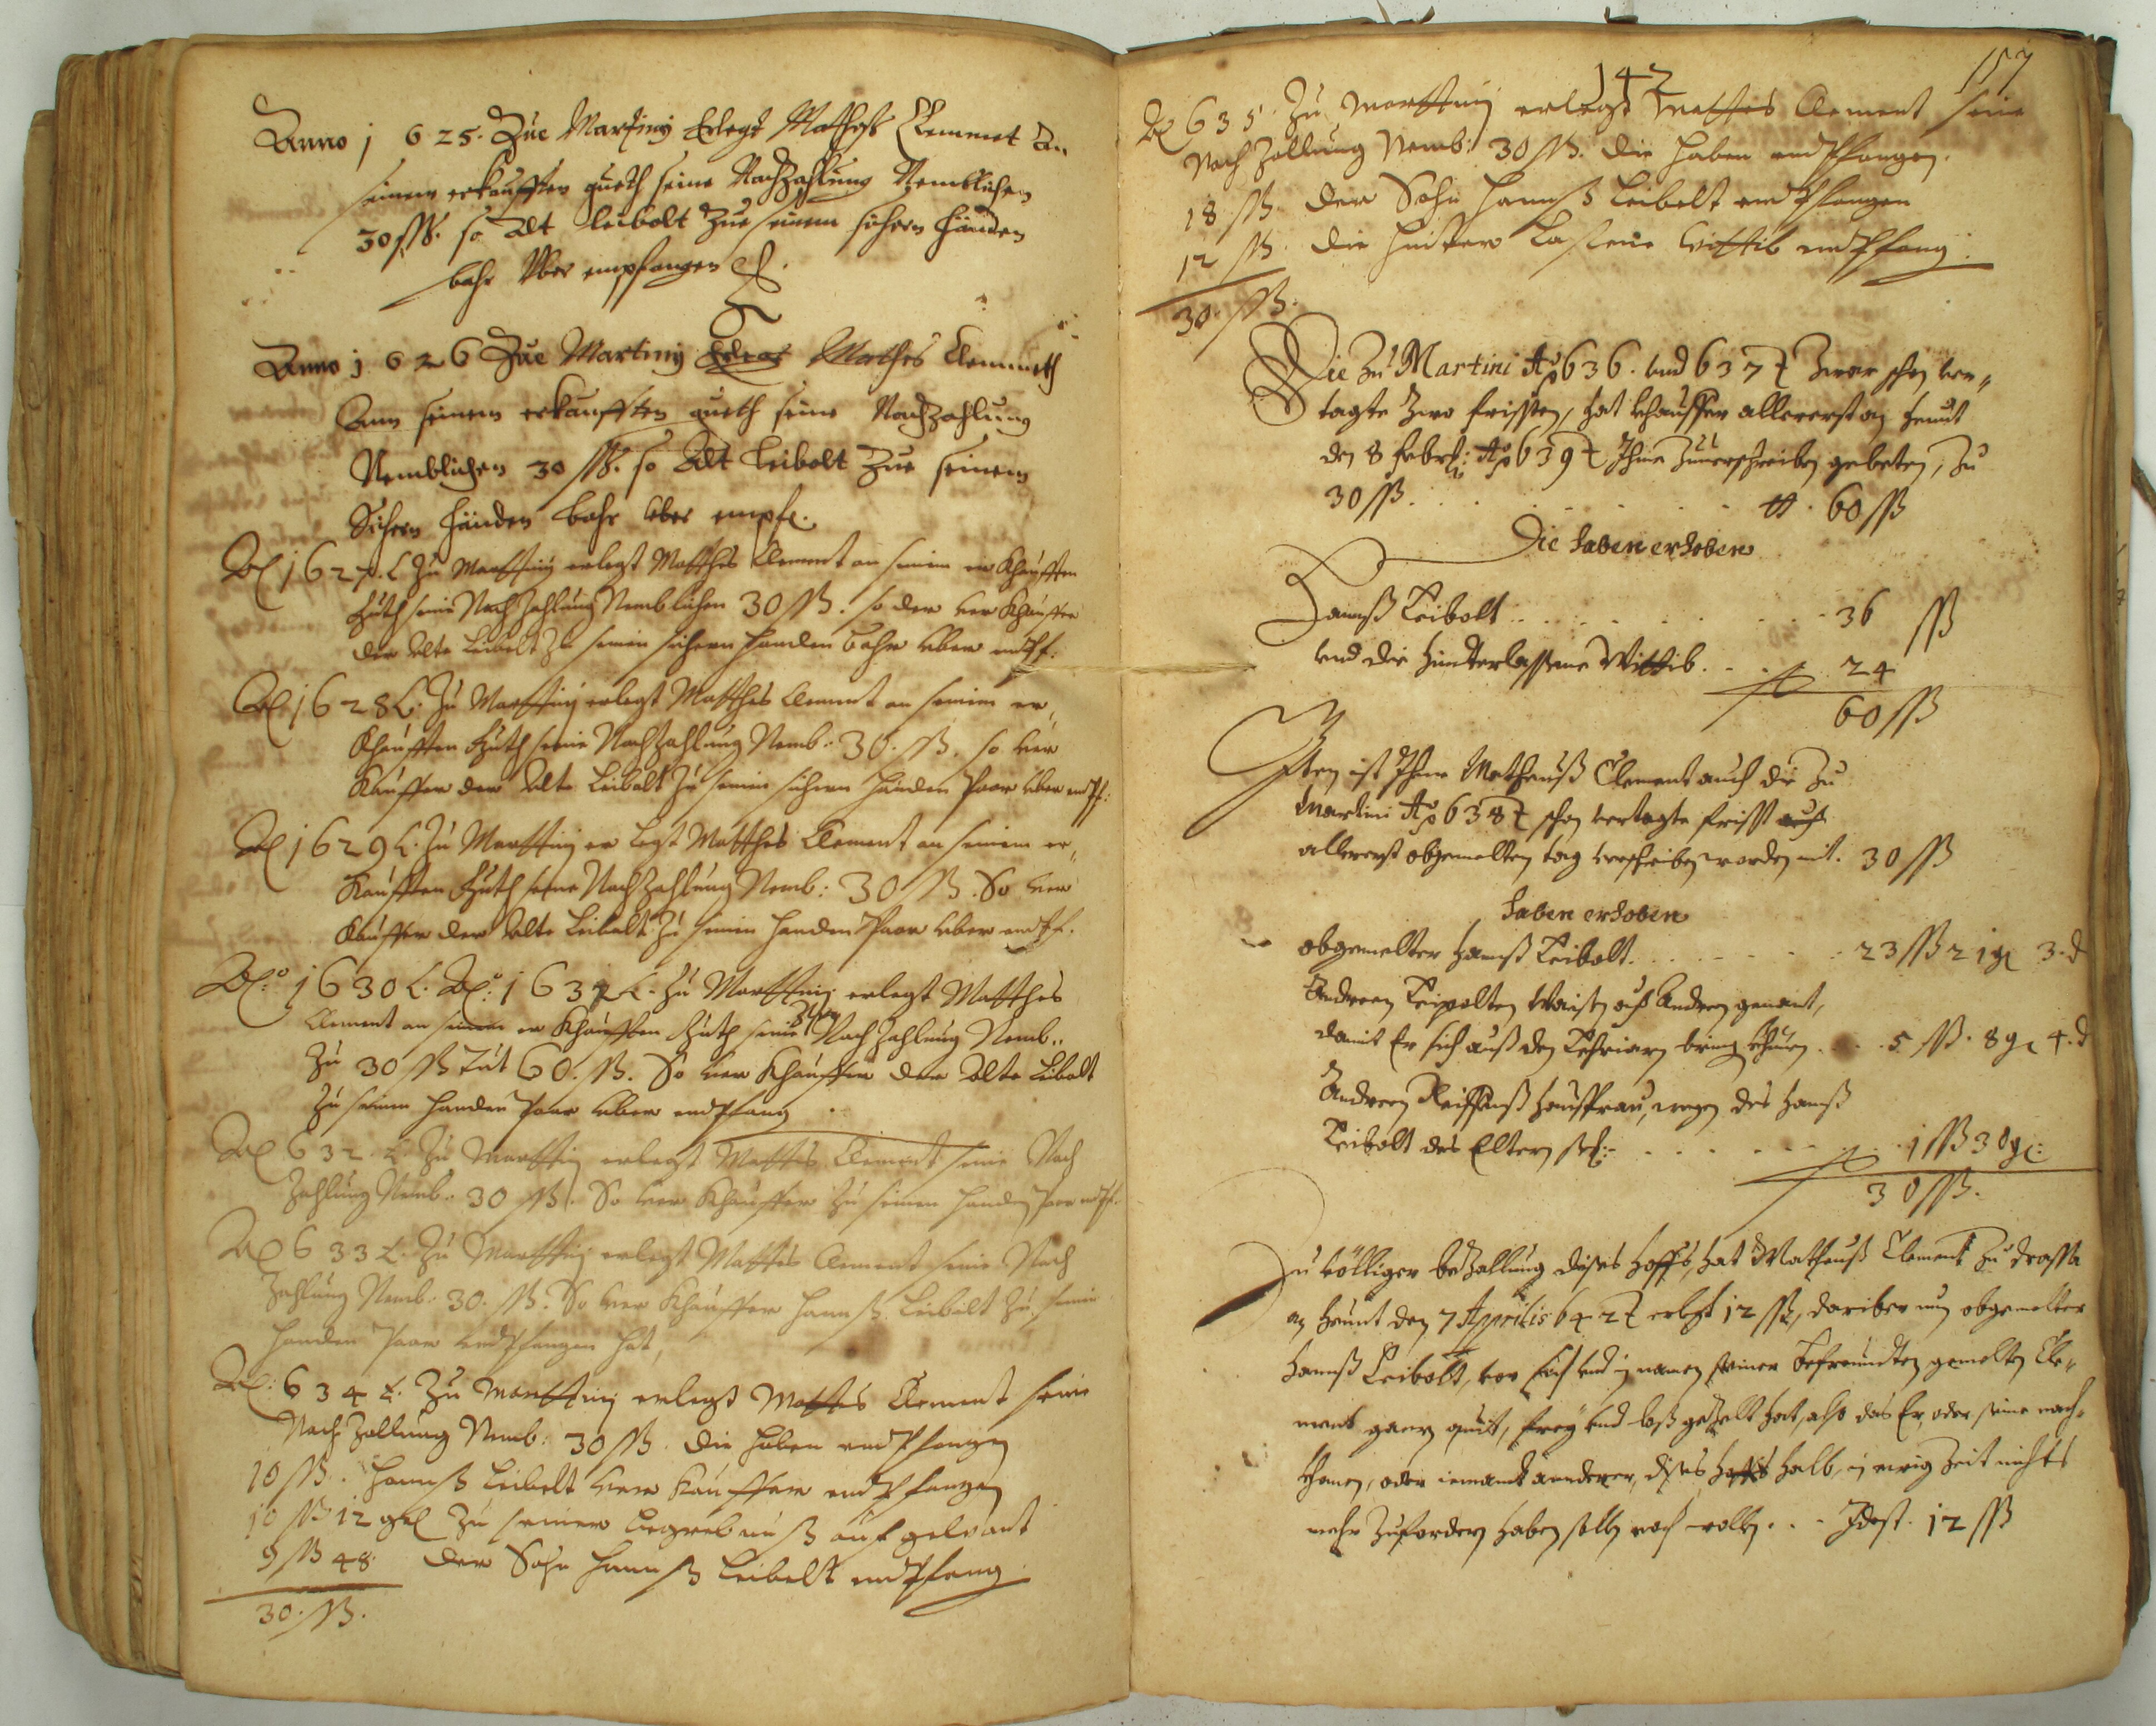 Anno 1625. Zue Martiny Erlegt Mathess Clemmet An
seinem erkaufften gueth seine Nachzahlung Nemblichen
30 ßß. so Alt Leibolt Zue seinem sichern Händen
bahr Vber empfangen
Anno 1626 Zue Martiny Erlegt Mathes Clemmeth
Ann seinem erkaufften gueth seine Nachzahlung
Nemblichen 30 ßß. so Alt Leibolt Zue seinem
Sichern Händen bahr Vber empf.
Ao 1627. Zu Marttiny erlegt Matthes Clement an seinem er Khaufften
Guth seine Nachzahlung Nemblichen 30 ßß. so der ver Khauffer
der Alte Leibolt Zu seinen sichern handen bahr vber entpf:
Ao 1628. Zu Marttiny erlegt Matthes Clement an seinem er,,
Khaufften Guth seine Nachzahlung Nemb. 30. ßß. so ver
Kauffer der Alte Leibolt Zu seinen sichern händen Paar vber entpf:
Ao 1629. Zu Marttiny er legt Matthes Clement an seinem er,,
Kaufften Guth seine Nachzahlung Nemb: 30 ßß. So ver
Kauffer der Alte Leibolt Zu seinen handen Paar vber entpf.
Ao: 1630. Ao: 1631. Zu Marttiny erlegt Matthes
Clement an seinem er Khaufften Guth seine Zwo Nach Zahlung Nemb..
Zu 30 ßß Tut 60. ßß. So ver Khauffer der Alte Leibolt
Zu seinen handen Paar vber entpfang
Ao 632. Zu Marttiny erlegt Mattes Clement seine Nach
Zahlung Nemb.. 30 ßß. So ver Khauffer Zu seinen handen Paar entpf.
Ao 633. Zu Marttiny erlegt Mattes Clement seine Nach
Zahlung Nemb. 30. ßß. So ver Khauffer Hannß Leibolt Zu seinen
handen Paar entpfangen hat,
Ao: 634. Zu Marttiny erlegt Mattes Clement seine
Nach Zallung Nemb: 30 ßß. die haben entpfangen
10 ßß. Hannß Leibelt ver Kauffer entpfangen
10 ßß 12 gl Zu seiner begrebnuß auf gewant
9 ßß 48. der Sohn Hannß Leibelt entpfang
30. ßß.
142
157
Ao 635. Zu Marttiny erlegt Mattes Clement seine
Nach Zallung Nemb: 30 ßß. die haben entpfangen.
18 ßß. der Sohn Hannß Leibelt entpfangen
12 ßß. die hinter Lasene wittib entpfang.
30. ßß.
Die Zu Martini Ao 636. vnd 637 Zwar schon ver,,
tagte Zwo fristen, hat Khauffer allererst an heunt
den 8 Febr: Ao 639 Ihme Zuuerschreiben gebeten, Zu
30 ßß. . . . . . 60 ßß
Die haben erhoben
Hannß Leibolt . . . . . . . 36 ßß
vnd die hinterlassene Wittib . . . 24
60 ßß
Iten ist Ihme Matheuß Clement auch die Zu
Martini Ao 638 schon vertagte frist auch
allererst obgemelten tag verschrieben worden mit. 30 ßß
haben erhoben
obgemelter Hannß Leibolt. . . . . . . 23 ßß 21 gl 3. d
Andreen Leipolten Waisen auch Andree genant,
damit Er sich auß den bring . . . 5 ßß. 8 gl 4. d
Andreen Hausfrau, wegen des Hannß
Leibolt des Eltern . . . . . . 1 ßß 30 gl:
30 ßß.
Zu völliger bezallung dises hoffs, hat Matheuß Clement Zu
an heunt den 7 Apprilis 642 erlegt 12 ßß, dariber nun obgemelter
Hannß Leibolt, vor sich vnd in namen seiner befreundten gemelten Cle,,
ment ganz quit, frey vnd loß gezelt hat, also das Er, oder seine nach,,
khomen, oder iemant annderer, dises hoffs halb, in ewig Zeit nichts
mehr Zufordern haben sollen noch wollen. . . Idest. 12 ßß